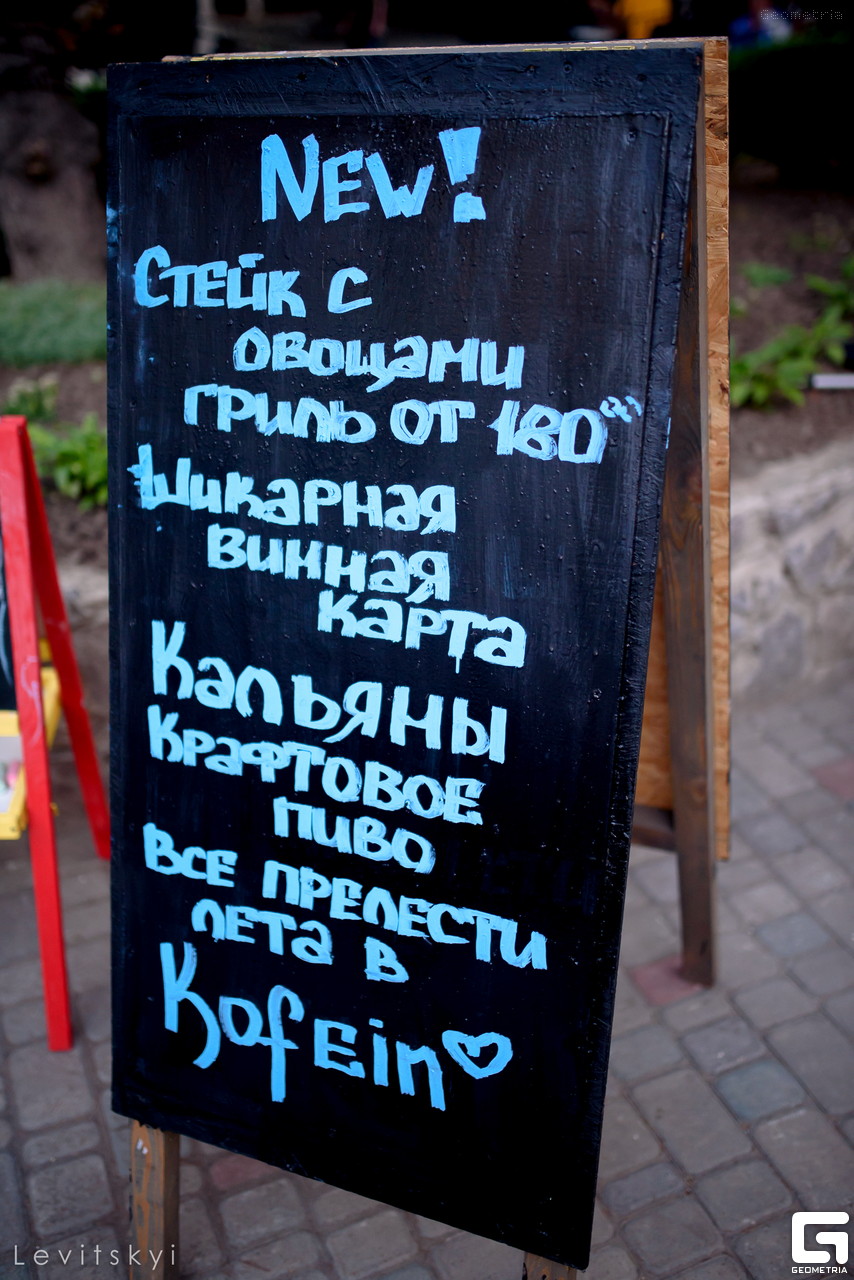 Geometria
New!
Стейк с
овощами
гриль от 180⁰⁰
Шикарная
винная
карта
Кальяны
Крафтовое
пиво
Все прелести
лета в
Kofein
Levitskyi
GEOMETRIA